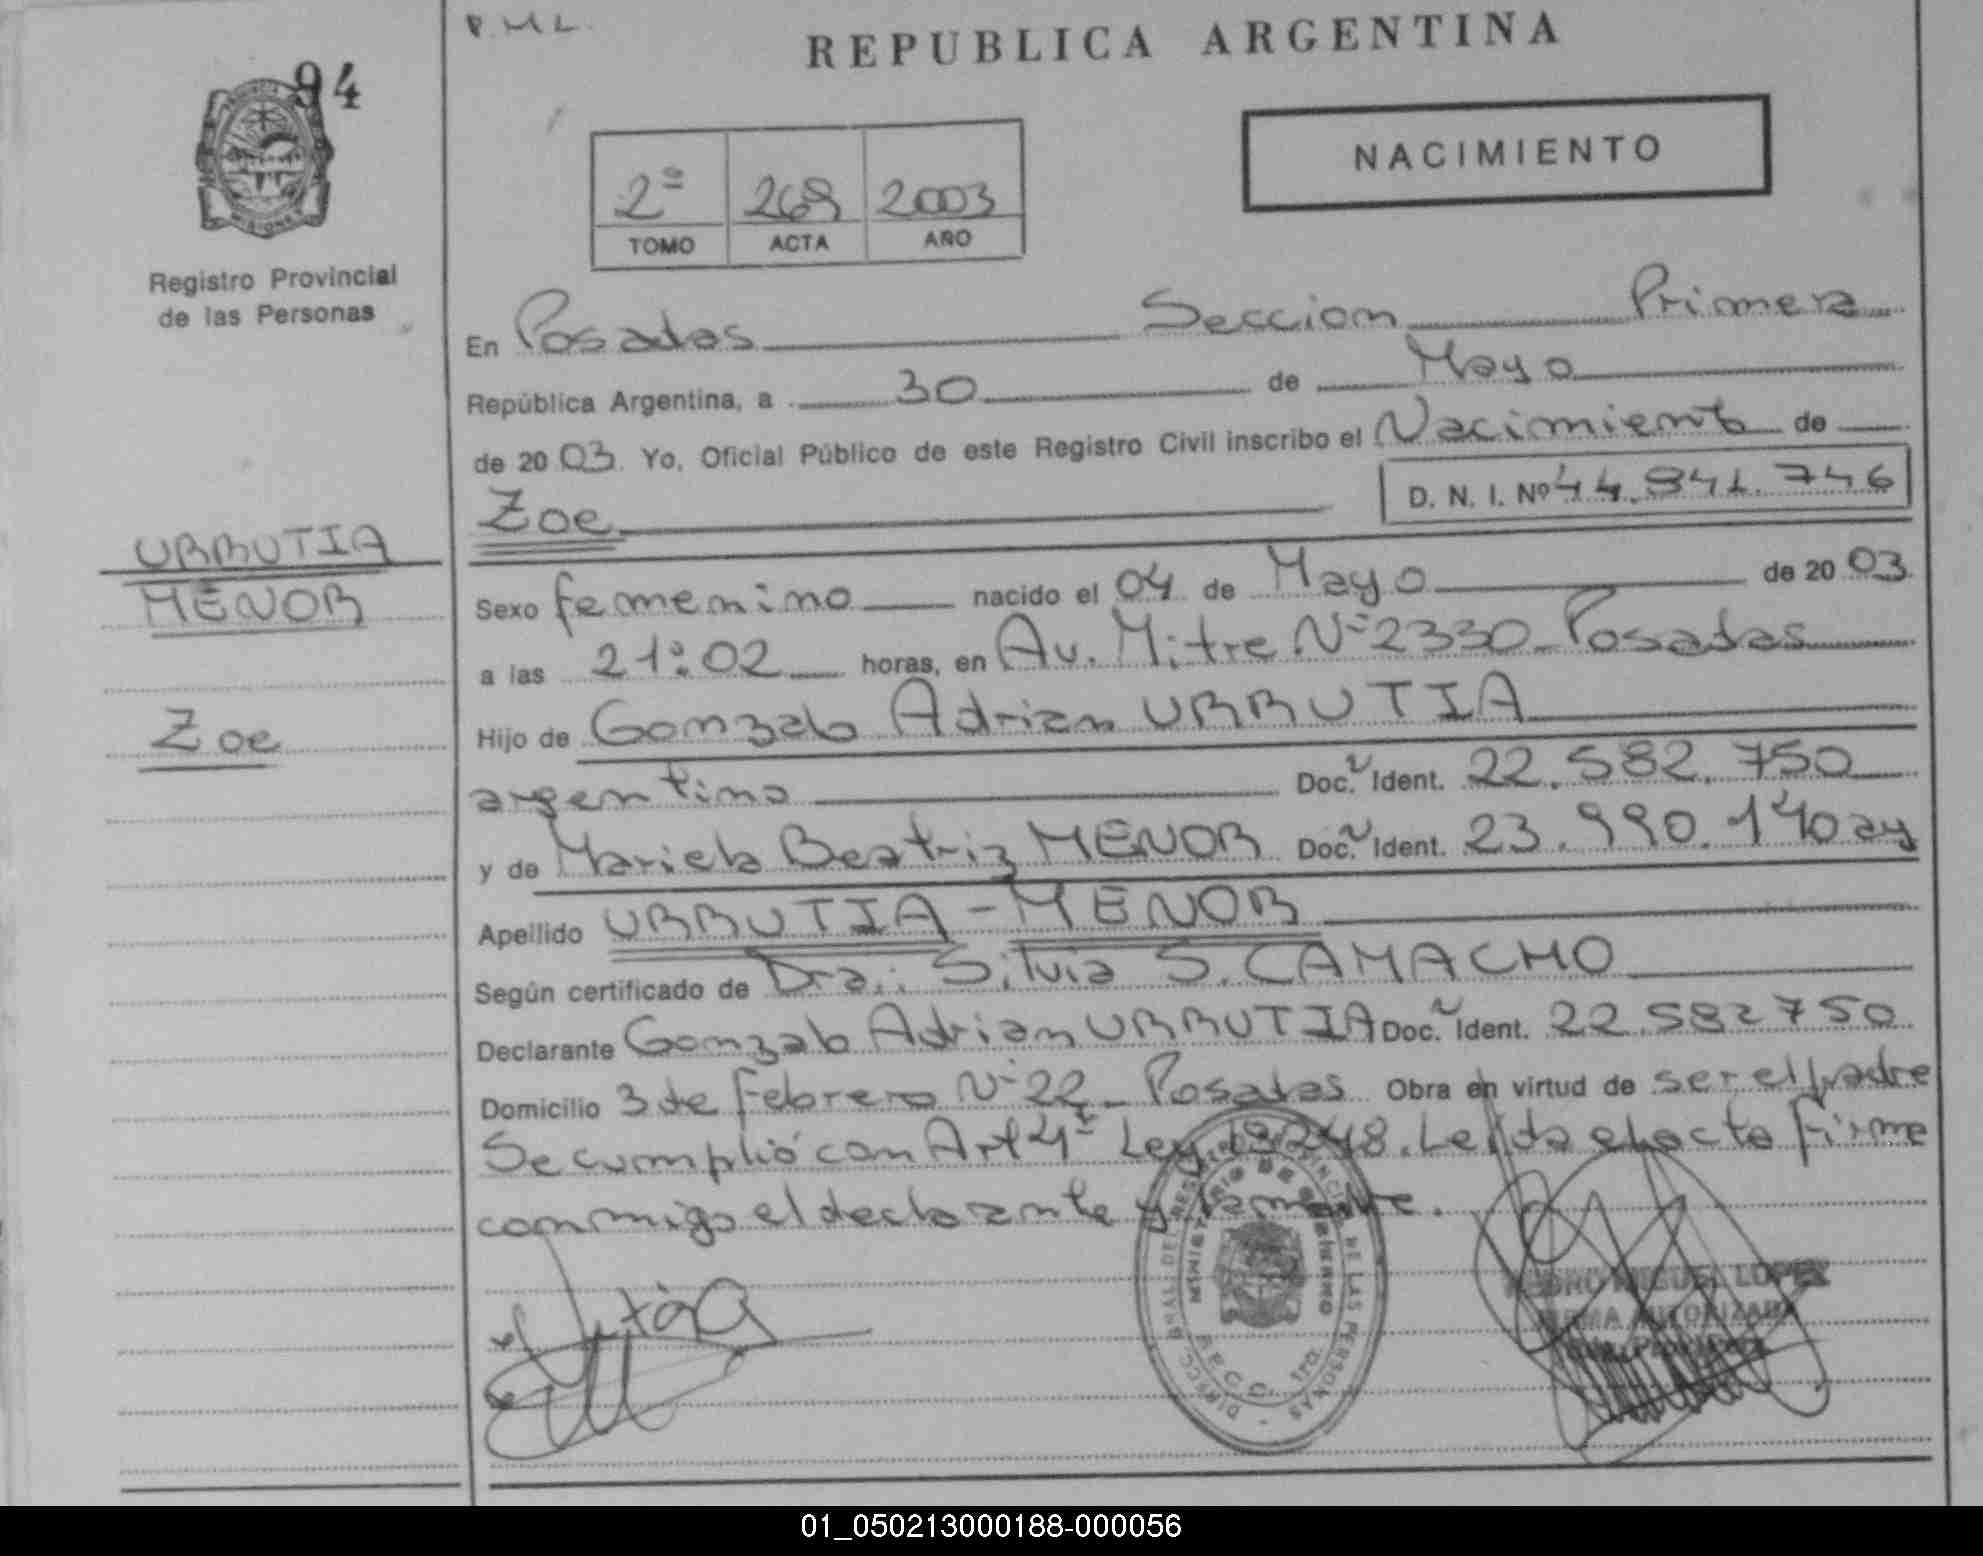 P.M.L.
REPUBLICA ARGENTINA
94
NACIMIENTO
2º 268 2003
TOMO ACTA AÑO
Registro Provincial
de las Personas
En Posadas Seccion Primera
República Argentina, a 30 de Mayo
de 2003. Yo, Oficial Público de este Registro Civil inscribo el Nacimiento de
Zoe D. N. I. Nº 44.941.746
URRUTIA
MENOR
Zoe
Sexo femenino nacido el 04 de Mayo de 2003
a las 21:02 horas, en Av. Mitre Nº 2330 - Posadas
Hijo de Gonzalo Adrian URRUTIA
argentino Doc. Ident. 22.582.750
y de Mariela Beatriz MENOR Doc. Ident. 23.990.140 ay
Apellido URRUTIA - MENOR
Según certificado de Dra.: Silvia S. CAMACHO
Declarante Gonzalo Adrian URRUTIA Doc. Ident. 22.582750
Domicilio 3 de febrero Nº 22 - Posadas Obra en virtud de ser el padre
Se cumplió con Art 4º Ley 13248. Leída el acta firme
conmigo el declarante y la madre.
DIRECC. GRAL DEL REG. PROVINCIAL DE LAS PERSONAS
MINISTERIO DE GOBIERNO
SECC. 1ra.
PEDRO MIGUEL LOPEZ
FIRMA AUTORIZADA
01_050213000188-000056